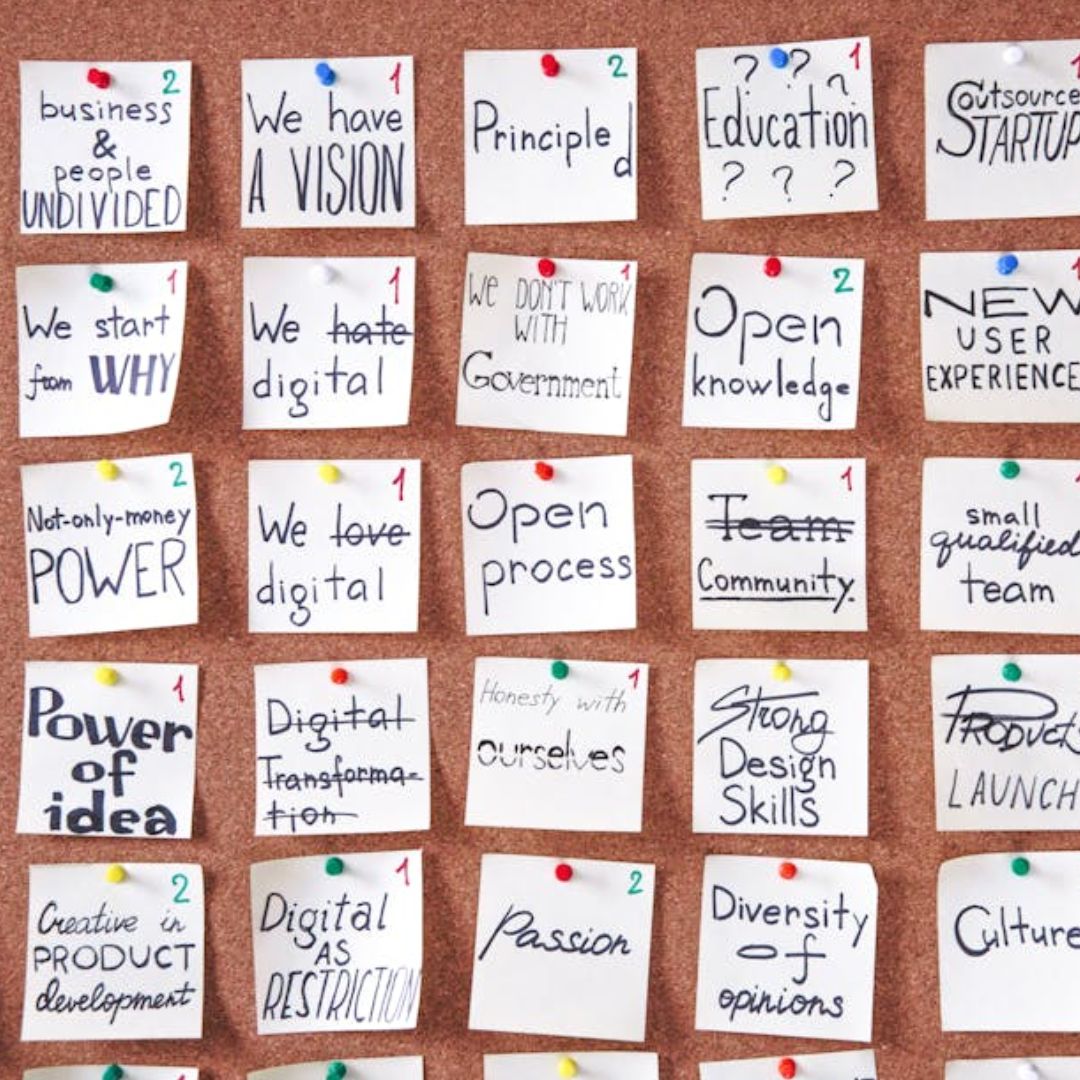 2
business
&
people
UNDIVIDED
1
We have
A VISION
2
Principle
d
? ? ? 1
Education
? ? ?
1
Outsource
STARTUP
1
We start
from WHY
1
We hate
digital
1
We DON'T WORK
WITH
Government
2
Open
knowledge
1
NEW
USER
EXPERIENCE
2
Not-only-money
POWER
1
We love
digital
Open
process
1
Team
Community.
1
small
qualified
team
1
Power
of
idea
Digital
Transforma-
tion
1
Honesty with
ourselves
Strong
Design
Skills
Products
LAUNCH
2
Creative in
PRODUCT
development
1
Digital
AS
RESTRICTION
2
Passion
Diversity
of
opinions
Culture
1